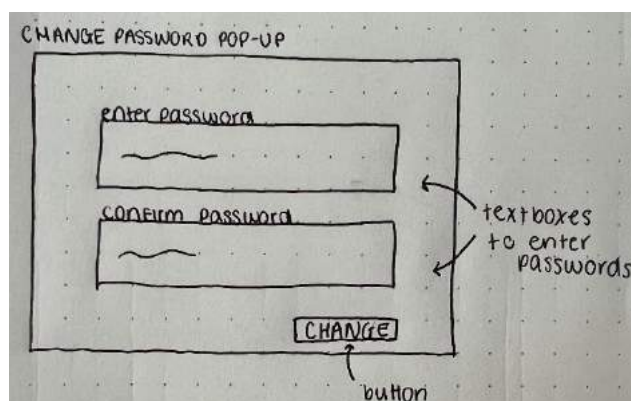 CHANGE PASSWORD POP-UP
enter password
confirm password
textboxes
to enter
passwords
CHANGE
button